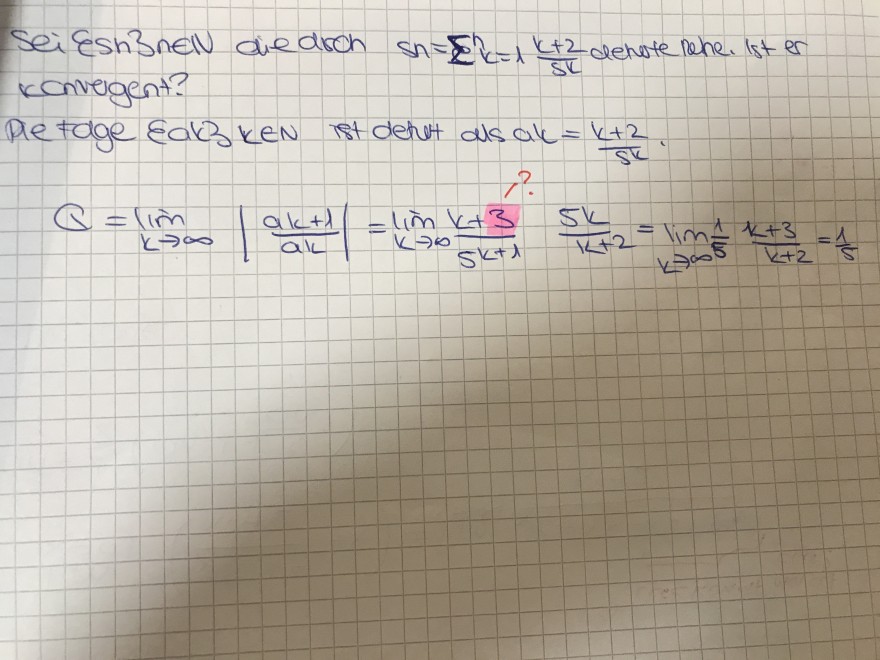 Sei {sn}n∈N die durch sn = Σⁿk=1 k+2/5k denote Reihe. Ist er
konvergent?
Die Folge {ak}k∈N ist defin​t als ak = k+2/5k.
?
Q = lim k→∞ |ak+1/ak| = lim k→∞ k+3/5k+1 5k/k+2 = lim k→∞ 1/5 k+3/k+2 = 1/5